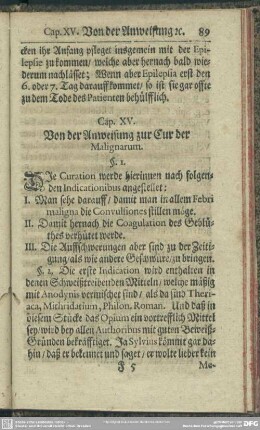 Cap. XV. Von der Anweisung ꝛc. 89
cken ihr Anfang pfleget insgemein mit der Epi-
lepsie zu kommen/ welche aber hernach bald wie-
derum nachlässet; Wenn aber Epilepsia erst den
6. oder 7. Tag darauff kommet/ so ist sie gar offte
zu dem Tode des Patienten behülfflich.
Cap. XV.
Von der Anweisung zur Cur der
Malignarum.
§. 1.
Die Curation werde hierinnen nach folgen-
den Indicationibus angestellet:
I. Man sehe darauff/ damit man in allem Febri
maligna die Convulsiones stillen möge.
II. Damit hernach die Coagulation des Geblü-
thes verhütet werde.
III. Die Auffschwerungen aber sind zu der Zeiti-
gung/ als wie andere Geschwüre/ zu bringen.
§. 2. Die erste Indication wird enthalten in
denen Schweißtreibenden Mitteln/ welche mäßig
mit Anodynis vermischet sind/ als da sind Theri-
aca, Mithridatium, Philon. Roman. Und daß in
diesem Stücke das Opium ein vortrefflich Mittel
sey/ wird bey allen Authoribus mit guten Beweiß-
Gründen bekräfftiget. Ja Sylvius kömmt gar da-
hin/ daß er bekennet und saget/ er wolte lieber kein
F 5 Me-